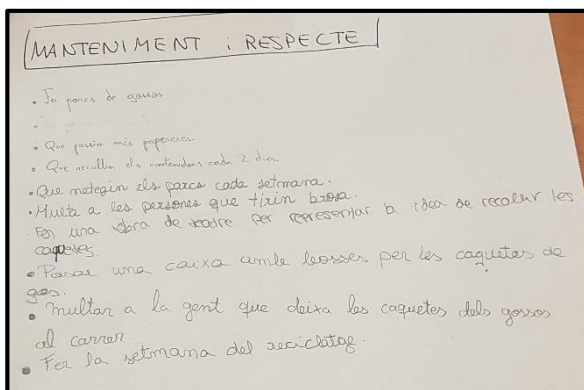 MANTENIMENT i RESPECTE
• parcs de gossos
• Que possin més papereres.
• Que recullin els contenidors cada 2 dies.
• Que netegin els parcs cada setmana.
• Multa a les persones que tirin brosa.
Fer una obra de teatre per representar la idea de recollir les
caquetes.
• Posar una caixa amb bosses per les caquetes de
gos.
• Multar a la gent que deixa les caquetes dels gossos
al carrer.
• Fer la setmana del reciclatge.